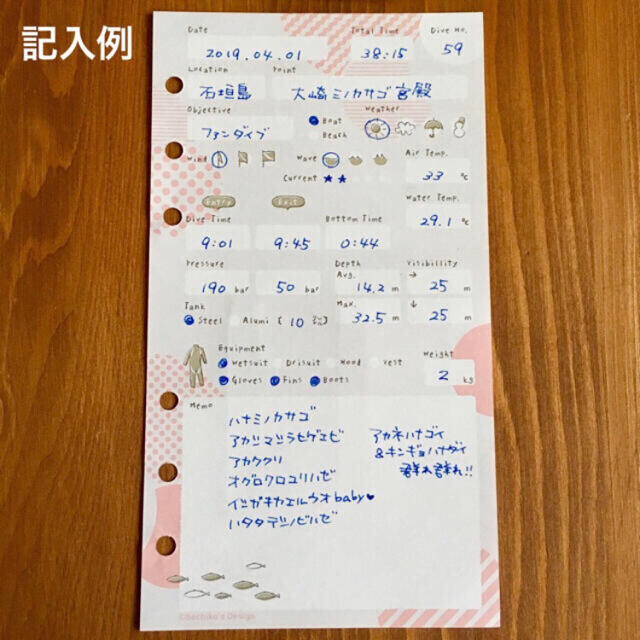 記入例
Date Total Time Dive No.
2019.04.01 38:15 59
Location Point
石垣島 大崎ミノカサゴ宮殿
Objective Boat Weather
ファンダイブ Beach
Wind Wave Air Temp.
Current ★★ 33 ℃
Entry Exit Water Temp.
29.1 ℃
Dive Time Bottom Time
9:01 9:45 0:44
Pressure Depth Visibillity
Avg. →
190 bar 50 bar 14.2 m 25 m
Tank Max. ↓
Steel Alumi [ 10 ㍑ ] 32.5 m 25 m
Equipment Weight
Wetsuit Drisuit Hood Vest
Gloves Fins Boots 2 kg
Memo
ハナミノカサゴ
アカシマシラヒゲエビ
アカククリ
オグロクロユリハゼ
イシガキカエルウオbaby♥
ハタタテシノビハゼ
アカネハナゴイ
&キンギョハナダイ
群れ群れ!!
©Sachiko's Design